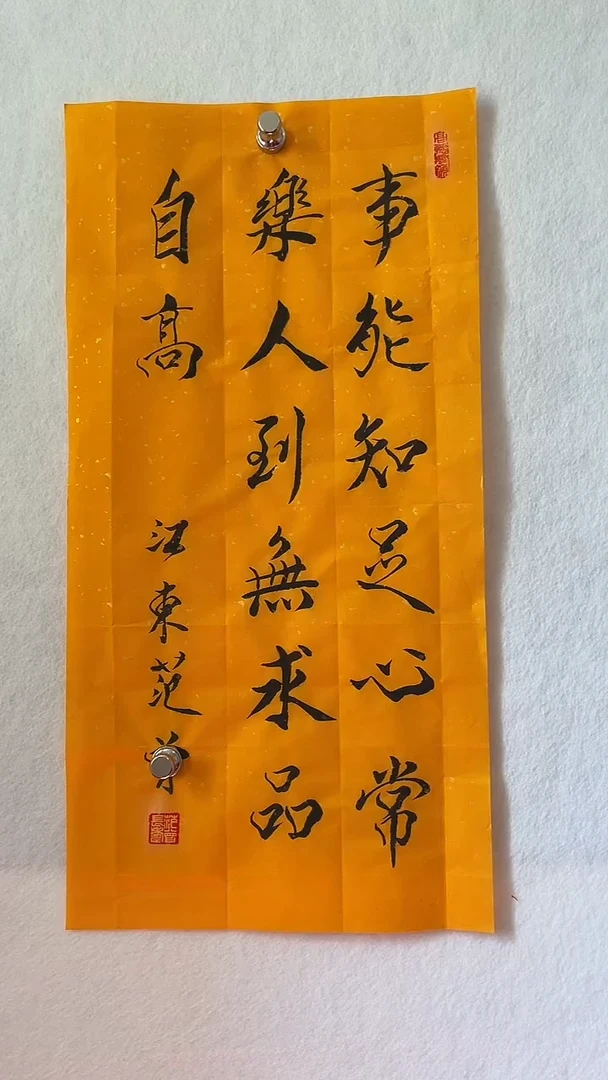 事能知足心常
樂人到無求品
自高
江東范